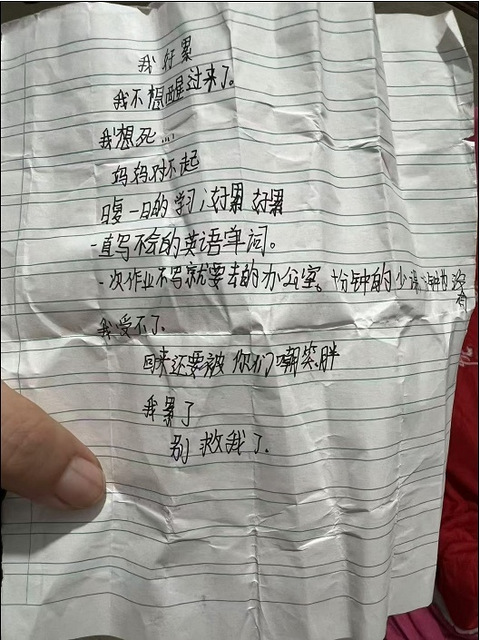 我好累
我不想醒过来了。
我想死...
妈妈对不起
日复一日的学习,好累 好累
一直写不会的英语单词。
一次作业不写就要去的办公室。十分钟的少课 分钟为没有
我受不了
回来还要被你们嘲笑胖
我累了
别救我了.